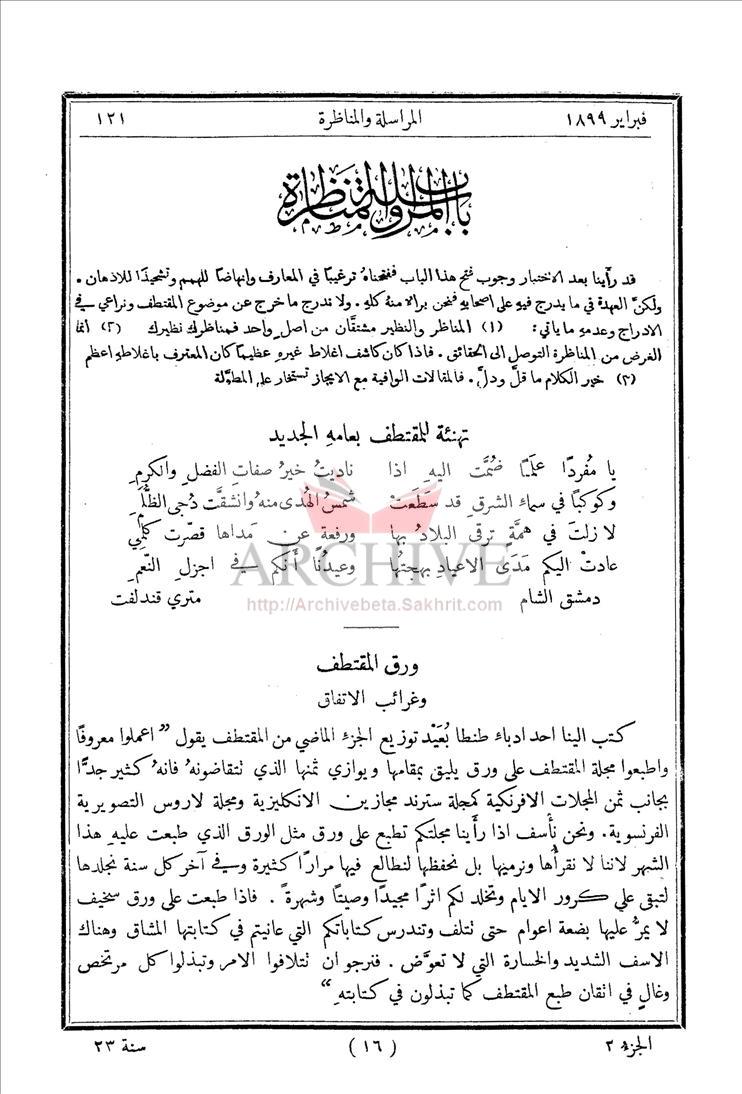 فبراير ١٨٩٩ المراسلة والمناظرة ١٢١
باب المراسلة والمناظرة
قد رأينا بعد الاختبار وجوب فتح هذا الباب ففتحناهُ ترغيبًا في المعارف وإنهاضًا للهمم وتشحيذًا للاذهان .
ولكنَّ العهدة في ما يدرج فيهِ على اصحابهِ فنحن برالا منهُ كلهِ . ولا ندرج ما خرج عن موضوع المقتطف ونراعي في
الادراج وعدمهِ ما يأتي : (١) المناظر والنظير مشتقَّان من اصلٍ واحد فمناظرك نظيرك (٢) انما
الغرض من المناظرة التوصل الى الحقائق . فاذا كان كاشف اغلاط غيرهِ عظيمًا كان المعترف باغلاطهِ اعظم
(٣) خير الكلام ما قلَّ ودلَّ . فالمقالات الوافية مع الايجاز تستخار على المطوَّلة
تهنئة للمقتطف بعامهِ الجديد
يا مُفردًا علمًا ضُمَّت اليهِ اذا ناديتُ خيرُ صفاتِ الفضلِ والكرمِ
وكوكبًا في سماء الشرق قد سَطَعَتْ شمسُ الهُدى منهُ وانشقَّت دُجى الظُلَمِ
لا زلتَ في همَّةٍ ترقى البلادُ بها ورفعةٍ عن مداها قصّرت كَلِمي
عادتْ اليكم مَدَى الاعيادِ بهجتُها وعيدُنا أنكم في اجزلِ النِّعَمِ
دمشق الشام متري قندلفت
ARCHIVE
http://Archivebeta.Sakhrit.com
ورق المقتطف
وغرائب الاتفاق
كتب الينا احد ادباء طنطا بُعَيْد توزيع الجزء الماضي من المقتطف يقول " اعملوا معروفًا
واطبعوا مجلة المقتطف على ورق يليق بمقامها ويوازي ثمنها الذي تتقاضونهُ فانهُ كثير جدًّا
بجانب ثمن المجلات الافرنكية كمجلة سترند مجازين الانكليزية ومجلة لاروس التصويرية
الفرنسوية. ونحن نأسف اذا رأينا مجلتكم تطبع على ورق مثل الورق الذي طبعت عليهِ هذا
الشهر لاننا لا نقرأها ونرميها بل نحفظها لنطالع فيها مرارًا كثيرة وفي آخر كل سنة نجلدها
لتبقى على كرور الايام وتخلد لكم اثرًا مجيدًا وصيتًا وشهرةً . فاذا طبعت على ورق سخيف
لا يمرُّ عليها بضعة اعوام حتى تتلف وتندرس كتاباتكم التي عانيتم في كتابتها المشاق وهناك
الاسف الشديد والخسارة التي لا تعوَّض . فنرجو ان تتلافوا الامر وتبذلوا كل مرتخص
وغالٍ في اتقان طبع المقتطف كما تبذلون في كتابتهِ "
الجزء ٢ (١٦) سنة ٢٣